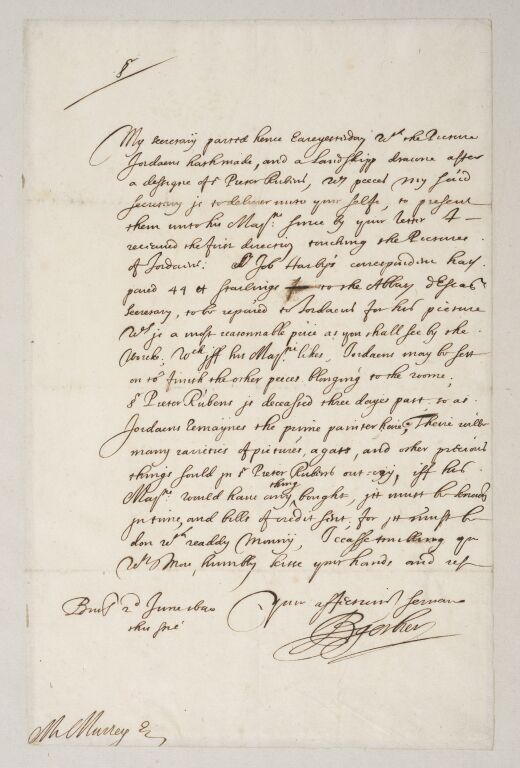 Sr
My Secretary parted hence Eareyesterday wth the Picture
Jordaens hath made, and a Landskipp drawne after
a designe of Sr Pieter Rubens, wch peeces my said
Secretary is to deliver unto your selfe, to present
them unto his Majtie. Since by your letter I
receaved the first directions touching the Pictures
of Jordains: Sr Job Harby's correspondent hath
payed 44 Starlings to the Abbat d'Escas
Secretary, to be repaied to Jordaens for his picture
wch is a most reasonnable price as you shall see by the
Worke. wch iff his Majtie likes, Jordaens may be sett
on to finish the other peeces belonging to the roome;
Sr Pieter Rubens is deceased three dayes past, so as
Jordaens remaynes the prime painter heere; There wilbe
many rarities of pictures, agats, and other pretious
things sould in Sr Pieter Rubens, iff his
Majtie would have any thing bought, it must be knowne
in time, and bills of credit sent, for it must be
don wth readdy monny, I ceasse troubling yu
wth More, humbly kisse your hands and rest
Your affectionat servant
Brusls 2d June 1640
BGerbier
Mr Murrey